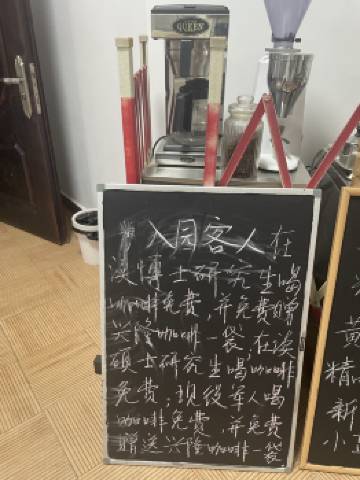 QUEEN
入园客人在
读博士研究生喝
咖啡免费,并免费赠
兴隆咖啡一袋,在读
硕士研究生喝咖啡
免费;现役军人喝
咖啡免费,并免费
赠送兴隆咖啡一袋
黄
精品
新
小